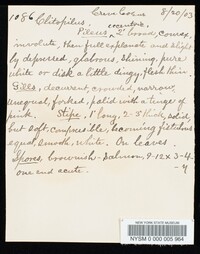 1086 Clitopilus. 8/20/03
Pileus 2" broad, convex,
involute, then full explanate and slight
ly depressed, glabrous, shining, pure
white or disk a little dingy, flesh thin.
Gills, decurrent, crowded, narrow
unequal, forked, pallid with a tinge of
pink. Stipe, 1' long, 2-3" thick, solid,
but soft, compressible, becoming fistulous
equal, smooth, white. On leaves.
Spores, brownish-salmon, 9-12 x 3-4
one end acute.
NEW YORK STATE MUSEUM
NYSM 0 000 005 964